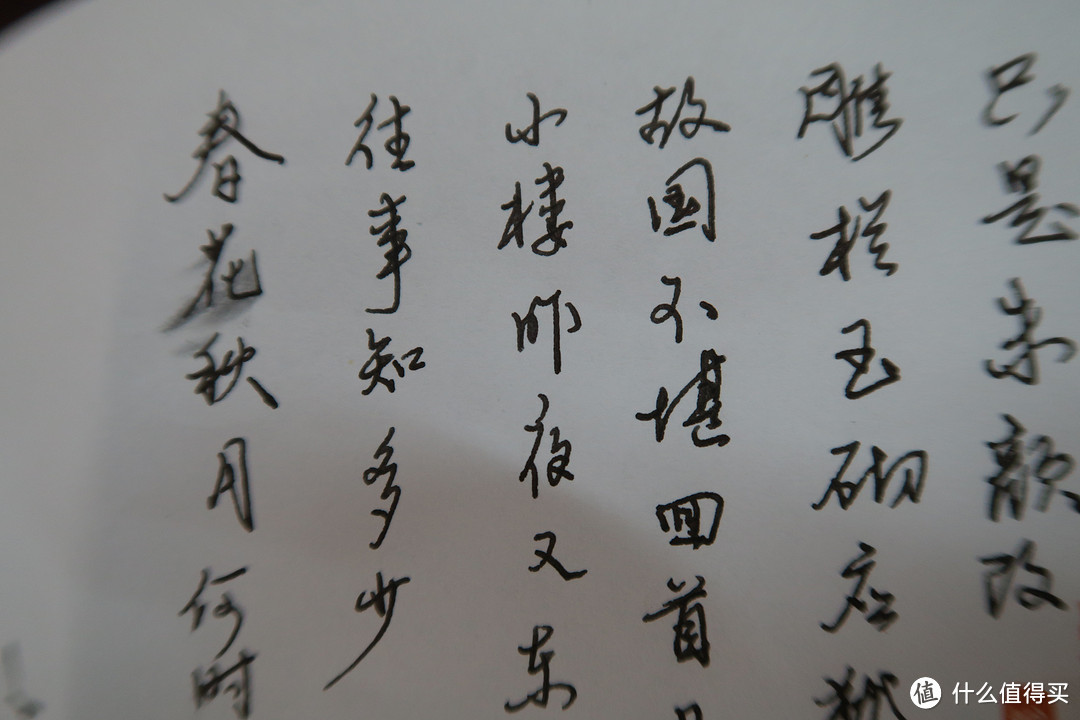 春花秋月何时
往事知多少
小楼昨夜又东
故国不堪回首
雕栏玉砌应犹
只是朱颜改
值 什么值得买